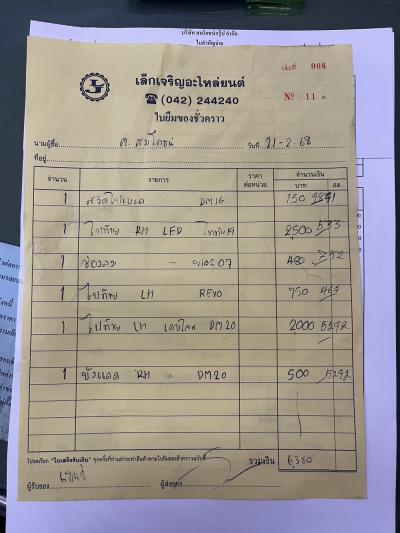 บริษัท สมโภชน์กรุ๊ป จำกัด
ใบสำคัญจ่าย
เล่มที่ 008
เล็กเจริญอะไหล่ยนต์
☎ (042) 244240
№ 11
ใบยืมของชั่วคราว
นามผู้ซื้อ ต. สมโภชน์ วันที่ 21-2-68
ที่อยู่
จำนวน รายการ ราคาต่อหน่วย จำนวนเงิน
บาท สต.
1 DM16 150
1 ไฟท้าย RH LED 2,500 533
1 VIOS 07 480
1 ไฟท้าย LH REVO 750
1 ไฟท้าย LH DM20 2,000 5292
1 บังแดด RH DM20 500 5292
โปรดเรียก "ใบเสร็จรับเงิน" ทุกครั้งที่ท่านชำระค่าสินค้าตามใบยืมของชั่วคราวฉบับนี้
รวมเงิน 6,380
ผู้รับของ ผู้ส่งของ